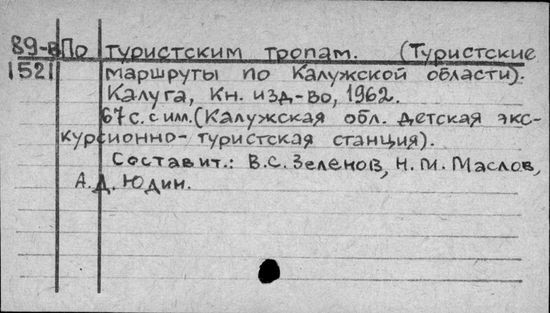 89-в По туристским тропам. (Туристские
1521 маршруты по Калужской области).
Калуга, Кн. изд-во, 1962.
67с. с ил. (Калужская обл. детская экс-
курсионно-туристская станция).
Составит.: В.С. Зеленов, Н.М. Маслов,
А.Д. Юдин.